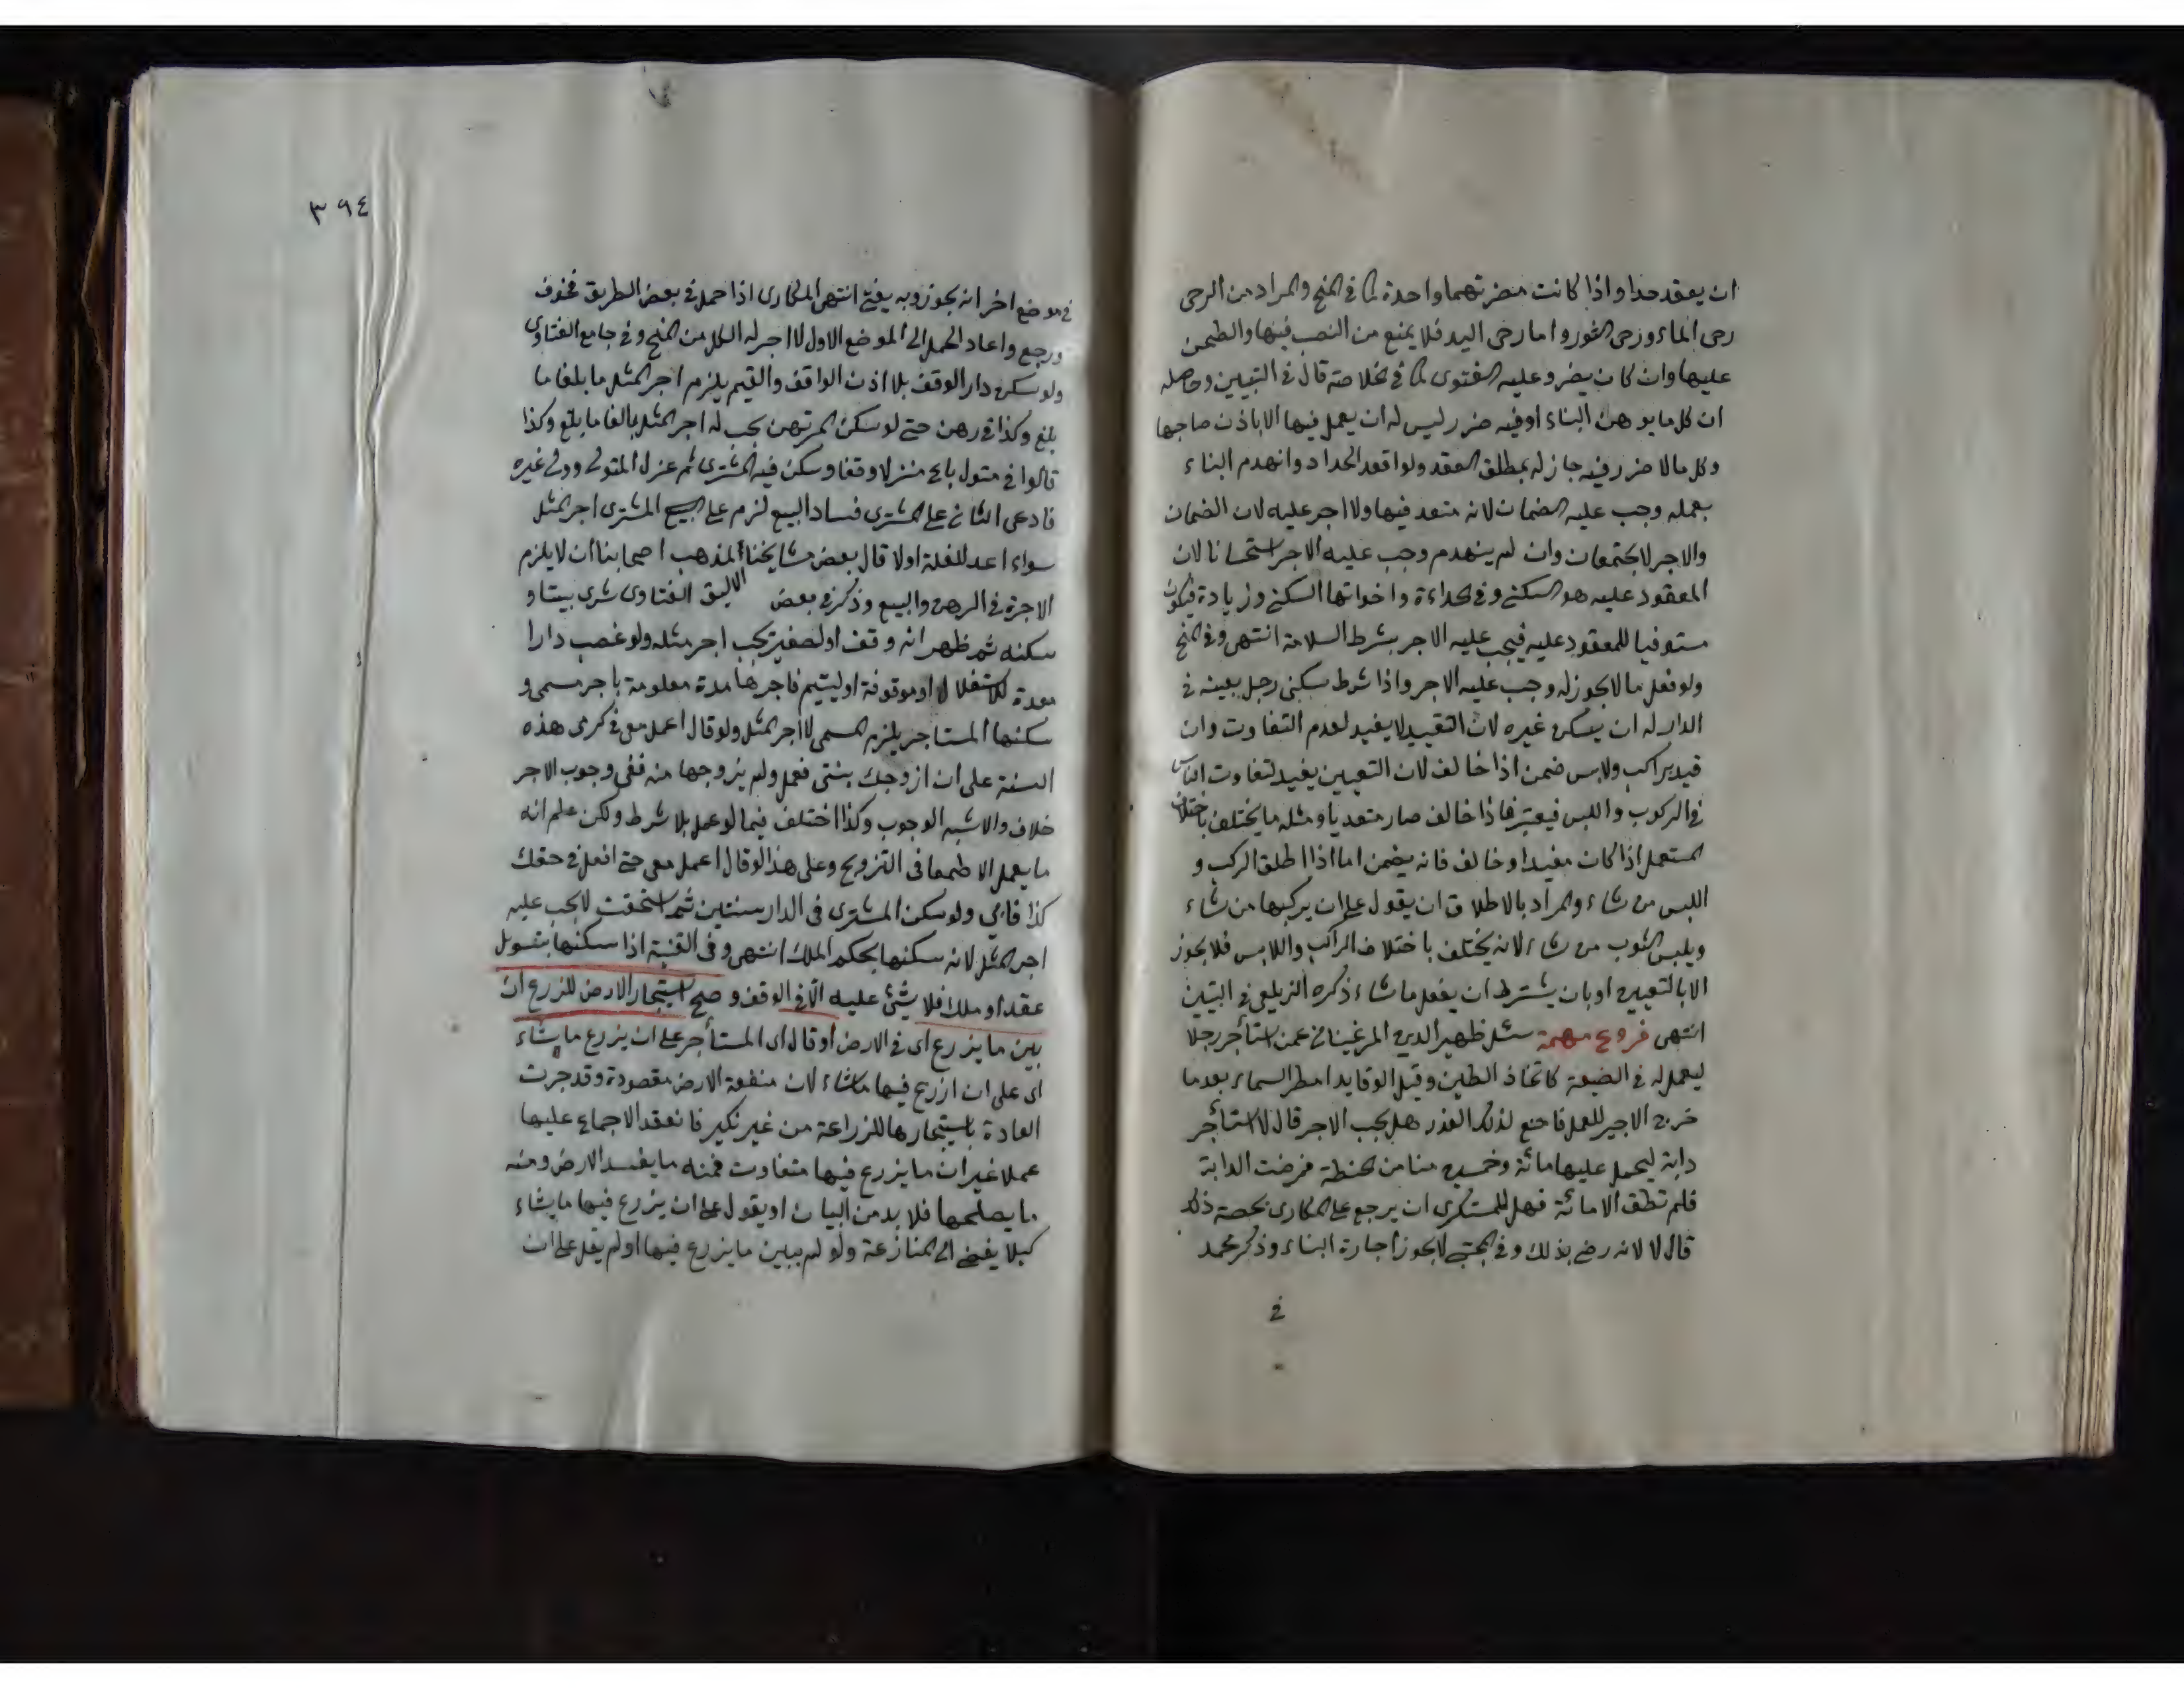 ان يعقد حدا واذا كانت مضرتهما واحدة كما فى المنح والمراد من الرحى
رحى الماء ورحى الثور واما رحى اليد فلا يمنع من النصب فيها والطحن
عليها وان كان يضر وعليه الفتوى كما فى الخلاصة قال فى التبيين وحاصله
ان كل ما يوهن البناء او فيه ضرر ليس له ان يعمل فيها الا باذن صاحبها
وكل ما لا ضرر فيه جاز له بمطلق العقد ولو اقعد الحداد وانهدم البناء
بعمله وجب عليه الضمان لانه متعد فيها ولا اجر عليه لان الضمان
والاجر لا يجتمعان وان لم ينهدم وجب عليه الاجر استحسانا لان
المعقود عليه هو السكنى وفى الحدادة واخواتها السكنى وزيادة فيكون
مستوفيا للمعقود عليه فيجب عليه الاجر بشرط السلامة انتهى وفى المنح
ولو فعل ما لا يجوز له وجب عليه الاجر واذا شرط سكنى رجل بعينه فى
الدار له ان يسكن غيره لان التقييد لا يفيد لعدم التفاوت وان
قيد براكب ولابس ضمن اذا خالف لان التعيين يفيد لتفاوت الناس
فى الركوب واللبس فيعتبر فاذا خالف صار متعديا ومثله ما يختلف باختلاف
المستعمل اذا كان مفيدا وخالف فانه يضمن اما اذا اطلق الركب و
اللبس من شاء والمراد بالاطلاق ان يقول على ان يركبها من شاء
ويلبس الثوب من شاء لانه يختلف باختلاف الراكب واللابس فلا يجوز
الا بالتعيين او بان يشترط ان يفعل ما شاء ذكره الزيلعى فى التبيين
انتهى فروع مهمة سئل ظهير الدين المرغينانى عمن استأجر رجلا
ليعمل له فى الضيعة كاتخاذ الطين وقيل الوقايد امطر السماء بعد ما
خرج الاجير للعمل فامتنع لذلك العذر هل يجب الاجر قال لا استأجر
دابة ليحمل عليها مائة وخمسين منا من الحنطة فمرضت الدابة
فلم تطق الا مائة فهل للمستكرى ان يرجع على المكارى بحصة ذلك
قال لا لانه رضى بذلك وفى المجتبى لا يجوز اجارة البناء وذكر محمد
فى
٣٩٤
فى موضع اخر انه يجوز وبه يفتى انتهى المكارى اذا حمل فى بعض الطريق فخوف
ورجع واعاد الحمل الى الموضع الاول لا اجر له الكل من المنح وفى جامع الفتاوى
ولو سكن دار الوقف بلا اذن الواقف والقيم يلزم اجر المثل ما بلغا ما
بلغ وكذا فى رهن حتى لو سكن المرتهن يجب له اجر المثل بالغا ما بلغ وكذا
قالوا فى متول باع منزلا وقفا وسكن فيه المشترى ثم عزل المتولى وولى غيره
فادعى الثانى على المشترى فساد البيع لزم على المشترى اجر المثل
سواء اعد للغلة اولا قال بعض مشايخنا المذهب اصحابنا ان لا يلزم
الاجرة فى الرهن والبيع وذكر فى بعض الفتاوى شرى بيتا و
سكنه ثم ظهر انه وقف او لصغير يجب اجر مثله ولو غصب دارا
معدة للاستغلال او موقوفة او ليتيم فاجرها مدة معلومة باجر مسمى و
سكنها المستاجر يلزم المسمى لا اجر المثل ولو قال اعمل معى فى كرمى هذه
السنة على ان ازوجك بنتى فعمل ولم يزوجها منه ففى وجوب الاجر
خلاف والاشبه الوجوب وكذا اختلف فيما لو عمل بلا شرط ولكن علم انه
ما يعمل الا طمعا فى التزويج وعلى هذا لو قال اعمل معى حتى افعل فى حقك
كذا فابى ولو سكن المشترى فى الدار سنتين ثم استحقت لا يجب عليه
اجر المثل لانه سكنها بحكم الملك انتهى وفى القنية اذا سكنها بتسويل
عقد او ملك فلا شئ عليه الا فى الوقف وصح استيجار الارض للزرع ان
بين ما يزرع اى فى الارض او قال اى المستأجر على ان يزرع ما يشاء
اى على ان ازرع فيها ما شاء لان منفعة الارض مقصودة وقد جرت
العادة باستيجارها للزراعة من غير نكير فانعقد الاجماع عليها
عملا غير ان ما يزرع فيها متفاوت فمنه ما يفسد الارض ومنه
ما يصلحها فلا بد من البيان او يقول على ان يزرع فيها ما يشاء
كيلا يفضى الى المنازعة ولو لم يبين ما يزرع فيها او لم يقل على ان